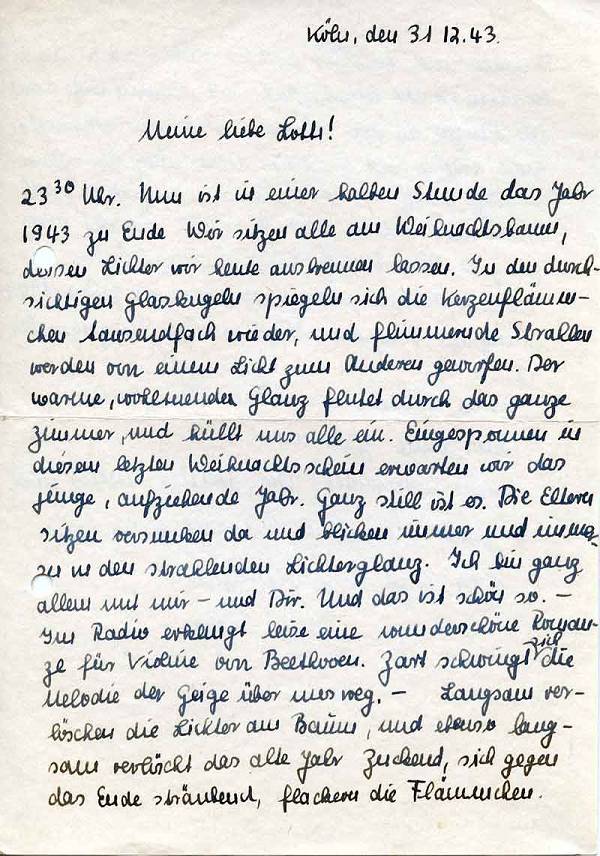 Köln, den 31 12.43.
Meine liebe Lotti!
23 30 Uhr. Nun ist in einer halben Stunde das Jahr
1943 zu Ende Wir sitzen alle am Weihnachtsbaum,
dessen Lichter wir heute ausbrennen lassen. In den durch-
sichtigen Glaskugeln spiegeln sich die Kerzenflämm-
chen tausendfach wieder, und flimmernde Strallen
werden von einem Licht zum Anderen geworfen. Der
warme, wohltuender Glanz flutet durch das ganze
Zimmer, und hüllt uns alle ein. Eingesponnen in
diesen letzten Weihnachtsschein erwarten wir das
junge, aufziehende Jahr. Ganz still ist es. Die Eltern
sitzen versunken da und blicken immer und imma-
zu in den strahlenden Lichterglanz. Ich bin ganz
allein mit mir – und Dir. Und das ist schön so. –
Im Radio erklingt leise eine wunderschöne Roman-
ze für Violine von Beethoven. Zart schwingt sich die
Melodie der Geige über uns weg. – Langsam ver-
löschen die Lichter am Baum, und ebenso lang-
sam verlöscht das alte Jahr Zuckend, sich gegen
das Ende sträubend, flackern die Flämmchen.